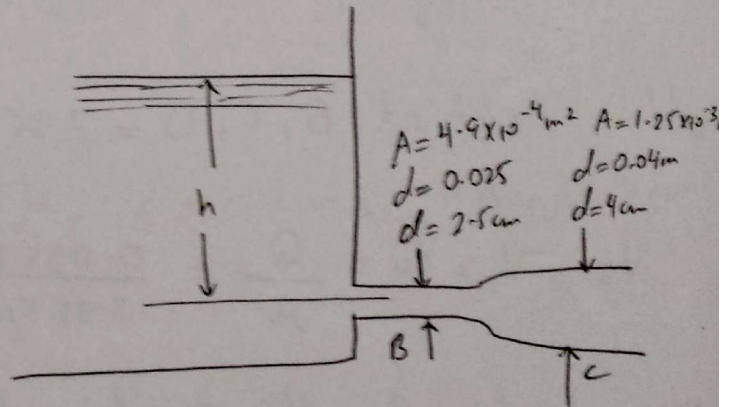 h
A = 4.9×10⁻⁴ m²
d = 0.025
d = 2.5cm
A = 1.25×10⁻³
d = 0.04m
d = 4cm
B
C